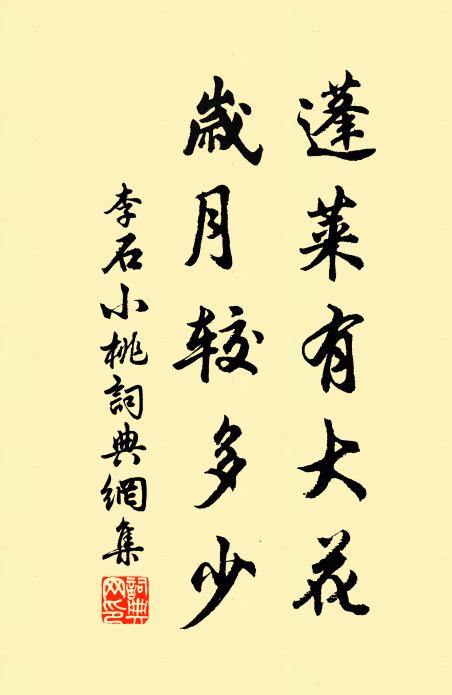 蓬莱有大花
歲月较多少
李石小桃詞典網集
詞典網印